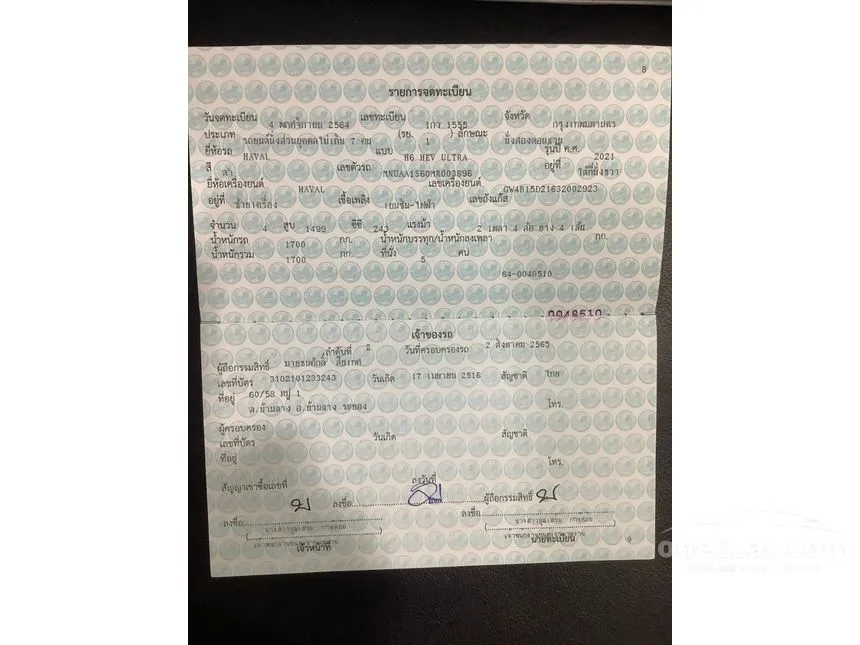 8
รายการจดทะเบียน
วันจดทะเบียน 4 พฤศจิกายน 2564 เลขทะเบียน 1กว 1555 จังหวัด กรุงเทพมหานคร
ประเภท รถยนต์นั่งส่วนบุคคลไม่เกิน 7 คน (รย. 1 ) ลักษณะ นั่งสองตอนท้าย
ยี่ห้อรถ HAVAL แบบ H6 HEV ULTRA รุ่นปี ค.ศ. 2021
สี ดำ เลขตัวรถ MNUAA1S60MR003896 อยู่ที่ ใต้ที่นั่งขวา
ยี่ห้อเครื่องยนต์ HAVAL เลขเครื่องยนต์ GW4B15D21632002923
อยู่ที่ ซ้ายเครื่อง เชื้อเพลิง เบนซิน-ไฟฟ้า เลขถังแก๊ส
จำนวน 4 สูบ 1499 ซีซี 243 แรงม้า 2 เพลา 4 ล้อ ยาง 4 เส้น
น้ำหนักรถ 1700 กก. น้ำหนักบรรทุก/น้ำหนักลงเพลา กก.
น้ำหนักรวม 1700 กก. ที่นั่ง 5 คน
64-0048510
0048510
เจ้าของรถ
ลำดับที่ 2 วันที่ครอบครองรถ 2 สิงหาคม 2565
ผู้ถือกรรมสิทธิ์ นายสมศักดิ์
เลขที่บัตร 3102101233243 วันเกิด 17 เมษายน 2516 สัญชาติ ไทย
ที่อยู่ 60/58 หมู่ 1
ต.บ้านฉาง อ.บ้านฉาง ระยอง โทร.
ผู้ครอบครอง
เลขที่บัตร วันเกิด สัญชาติ
ที่อยู่ โทร.
สัญญาเช่าซื้อเลขที่ ลงวันที่
ลงชื่อ ผู้ถือกรรมสิทธิ์
ลงชื่อ ลงชื่อ
เจ้าหน้าที่ นายทะเบียน
9